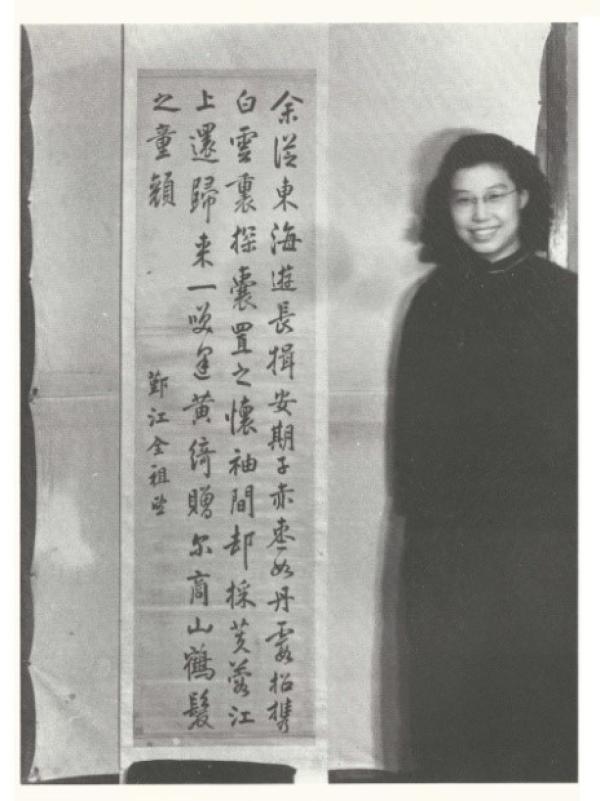 余從東海遊長揖安期子赤棗如丹霞招攜
白雲裏探囊置之懷袖間却採芙蓉江
上還歸来一笑逢黄綺贈尔商山鶴髮
之童顔
鄞江全祖望